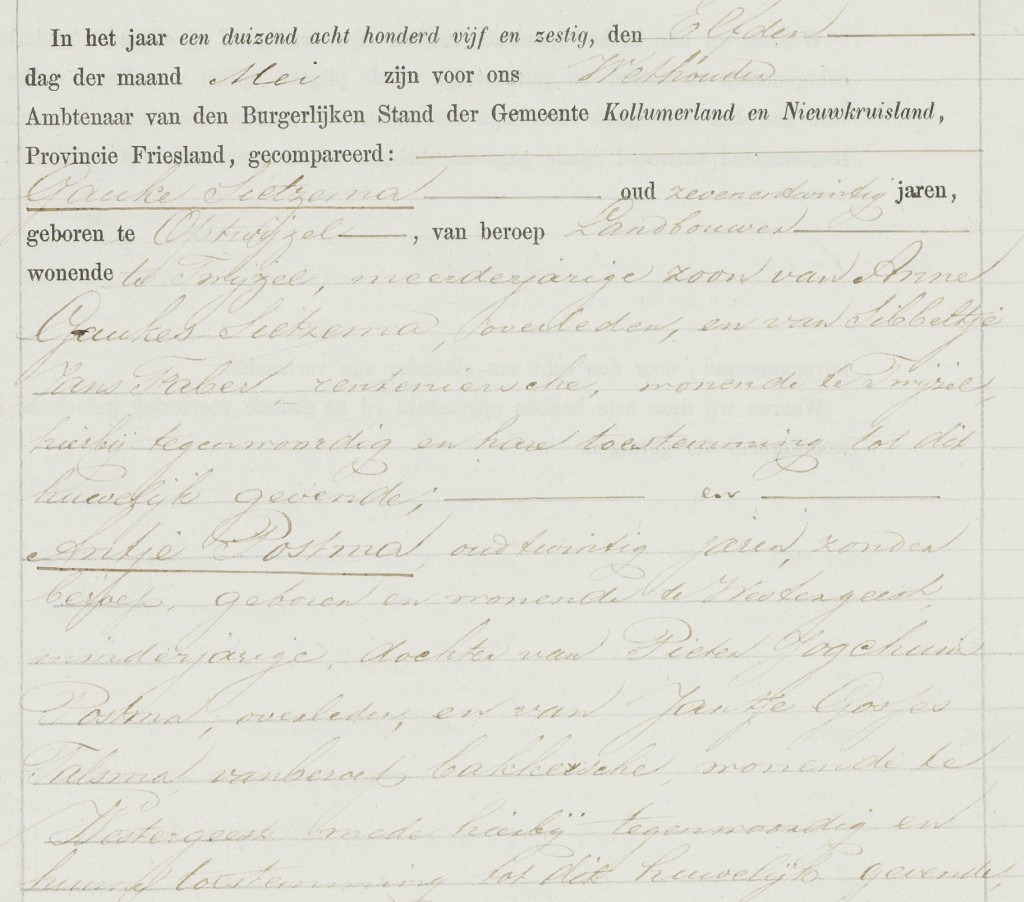 In het jaar een duizend acht honderd vijf en zestig, den Elfden
dag der maand Mei zijn voor ons Wethouder
Ambtenaar van den Burgerlijken Stand der Gemeente Kollumerland en Nieuwkruisland,
Provincie Friesland, gecompareerd:
Gauke Sietzema oud zevenentwintig jaren,
geboren te Optwijzel, van beroep Landbouwer
wonende te Twijzel, meerderjarige zoon van Anne
Gaukes Sietzema, overleden, en van Sibbeltje
Jans Faber renteniersche, wonende te Twijzel,
hierbij tegenwoordig en hare toestemming tot dit
huwelijk gevende; en
Antje Postma, oud twintig jaren, zonder
beroep, geboren en wonende te Westergeest,
minderjarige, dochter van Pieter Jogchum
Postma, overleden, en van Jantje Gosjes
Talsma, van beroep bakkersche, wonende te
Westergeest mede hierbij tegenwoordig en
toestemming tot dit huwelijk gevende,